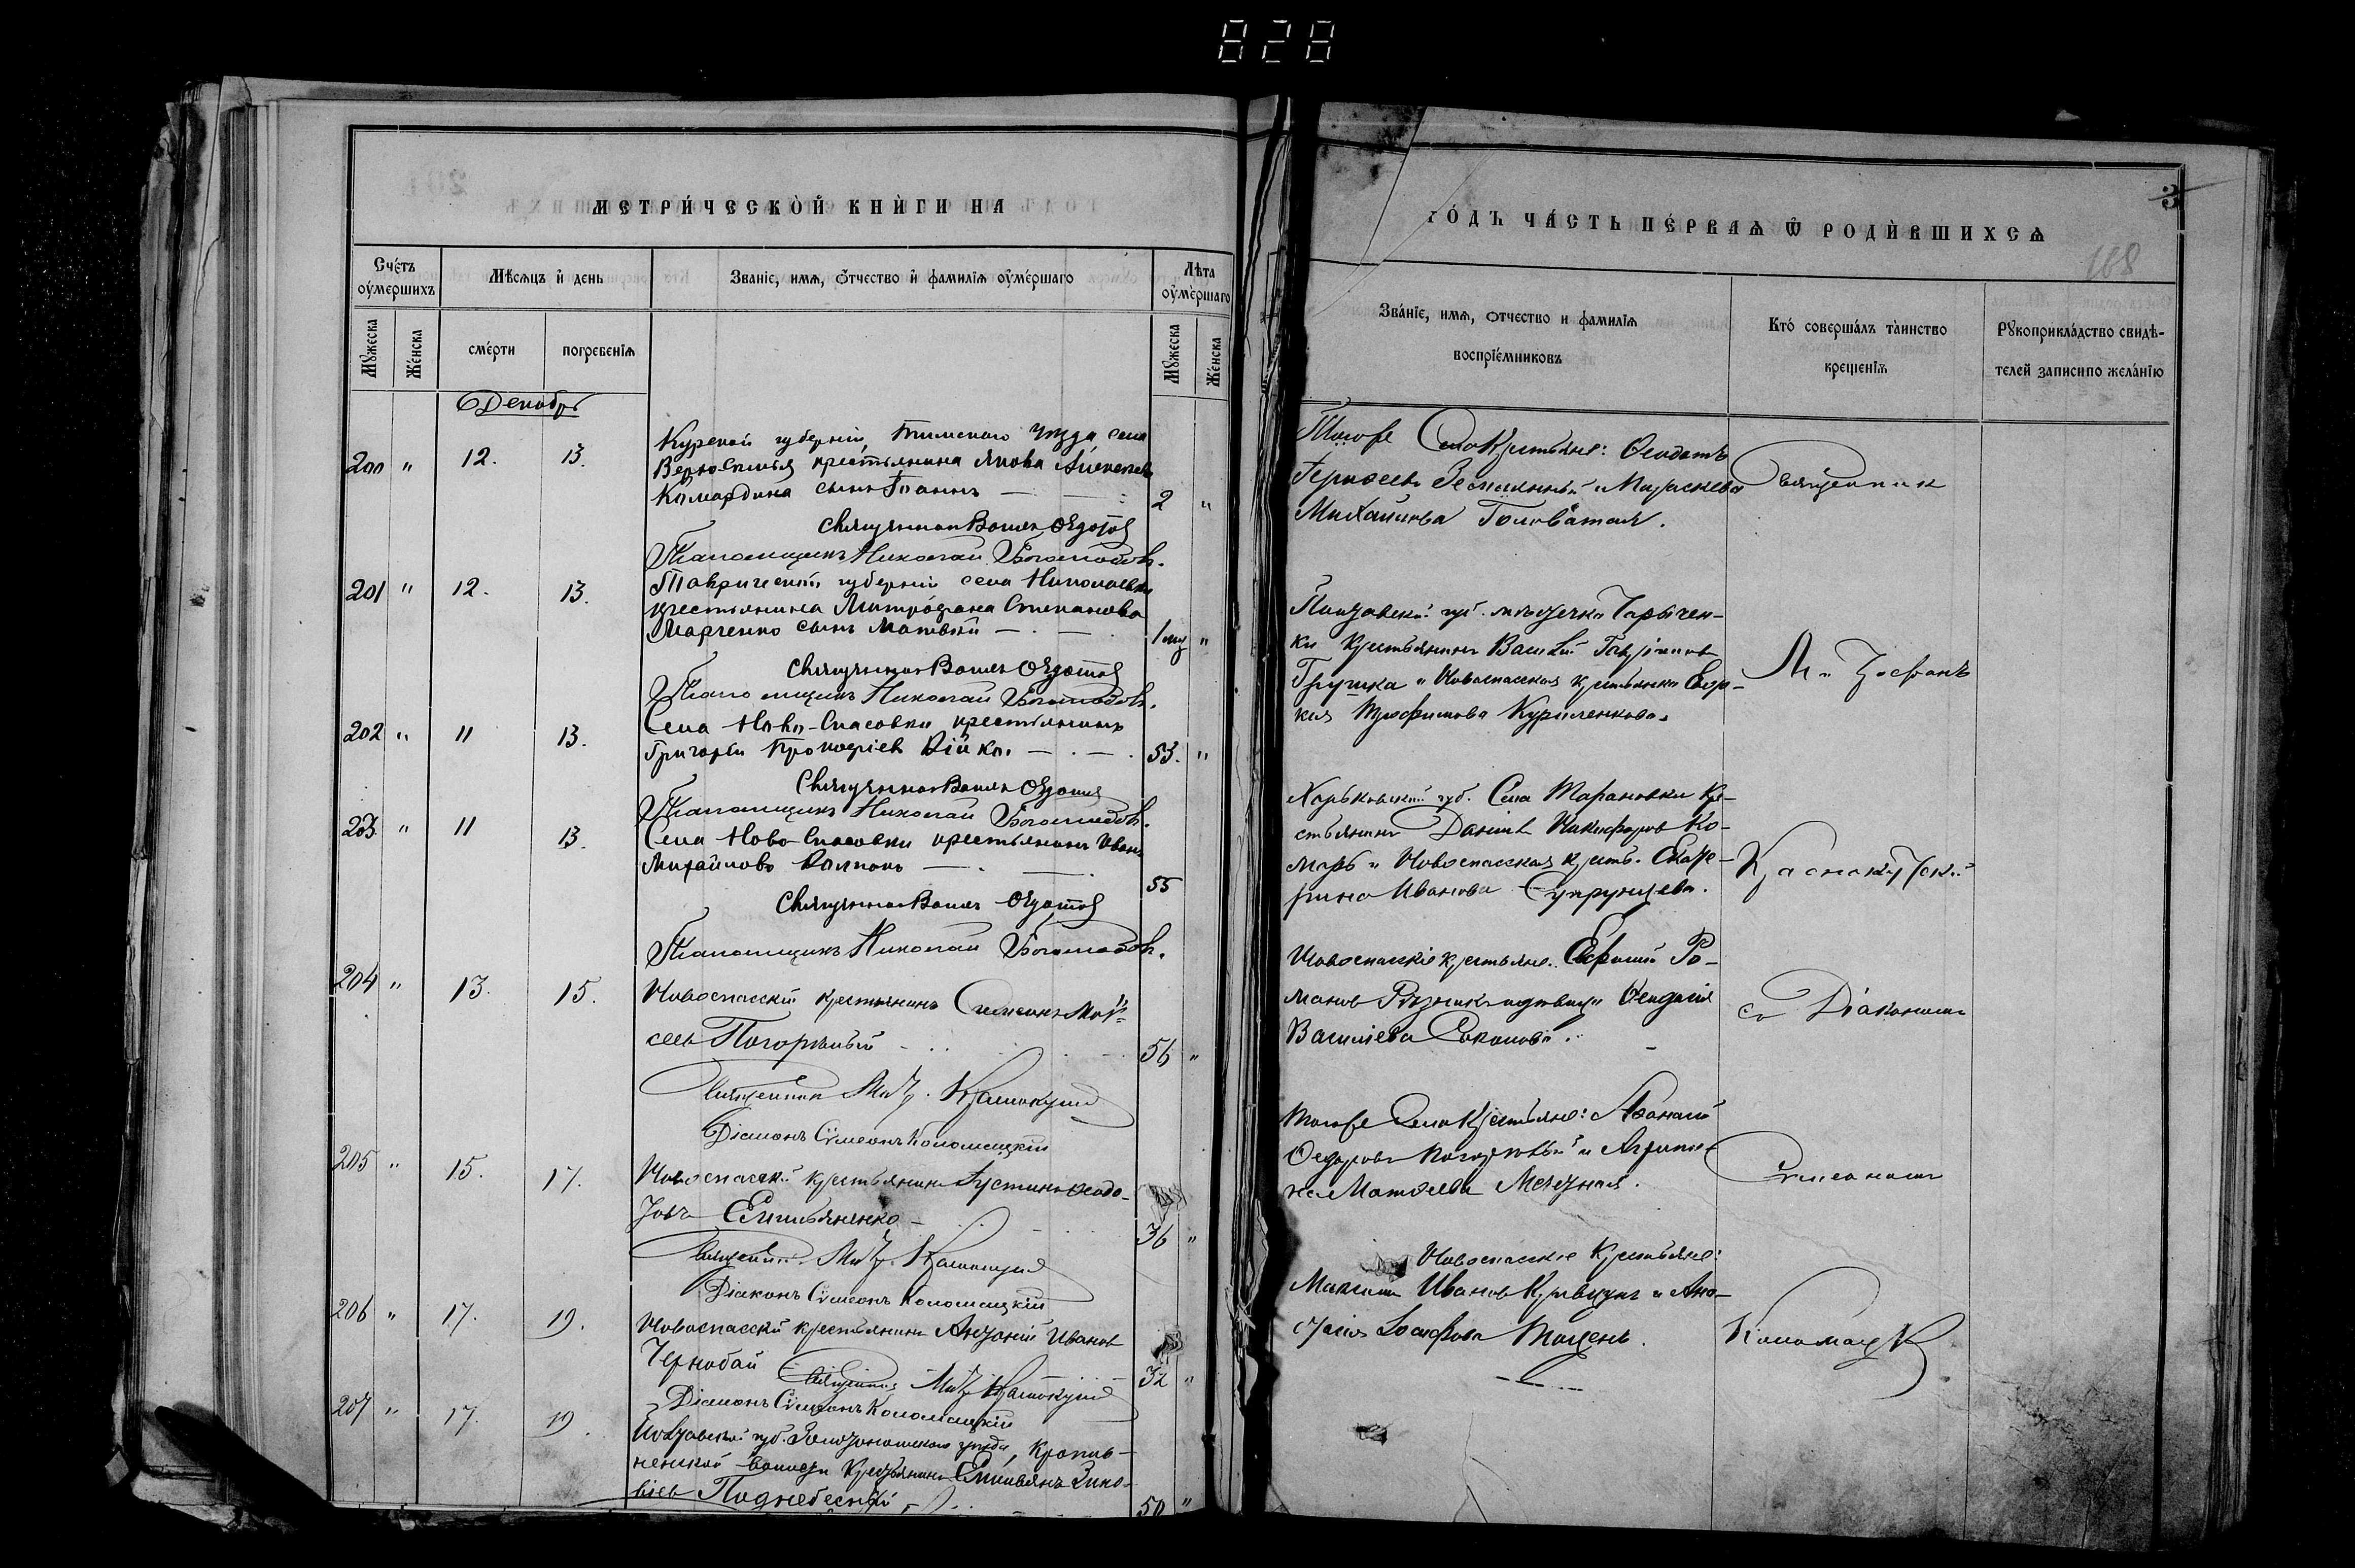 828
МЕТРИ́ЧЕСКО̀Й КНЍГИ НА
Сче́тъ оу҆ме́ршихъ
Мѣ́сѧцъ и҆ день
Зва́нїе, имѧ, ѻтчество и҆ фамилїѧ оу҆ме́ршаго
Лѣта оу҆ме́ршаго
Мꙋжеска
Же́нска
сме́рти
погребенїѧ
Мꙋжеска
Же́нска
Декабрь
200 " 12. 13.
Курской губерніи, Тимскаго уѣзда села
крестьянина Якова Алексѣева
Комардина сынъ Іоаннъ 2 "
Священникъ
Псаломщикъ Николай Богомолов.
201 " 12. 13.
Таврической губерніи села Николаевки
крестьянина Митрофана Степанова
Марченко сынъ Матвѣй 1 мц "
Священникъ
Псаломщикъ Николай Богомолов.
202 " 11 13.
Села Ново-Спасовки крестьянинъ
Григорій Прокофіев Бійко. 53. "
Священникъ
Псаломщикъ Николай Богомолов.
203 " 11 13.
Села Ново-Спасовки крестьянинъ Иванъ
Михайловъ 55
Священникъ
Псаломщикъ Николай Богомолов.
204 " 13. 15.
Новоспасскій крестьянинъ Симеонъ Мои-
сеев Погорѣлый 56 "
Священник Мит. Краснокутскій
Діаконъ Сѵмеонъ Коломацкій
205 " 15. 17.
Новоспасскій крестьянинъ Іустинъ Ѳеодо-
ровъ Емельяненко 36 "
Священник Мит. Краснокутскій
Діаконъ Сѵмеонъ Коломацкій
206 " 17. 19.
Новоспасскій крестьянинъ Антоній Иванов
Чернобай 32 "
Священник Мит. Краснокутскій
Діаконъ Сѵмеонъ Коломацкій
207 " 17. 19.
Полтавской губ. Золотоношскаго уѣзда, Кропив-
ненской волости Крестьянинъ Емильянъ Зино-
віев Поднебесный 50 "
3
ГО́ДЪ ЧА́СТЬ ПЕ́РВАѦ Ѽ РОДИ́ВШИХСѦ
188
Зва́нїе, имѧ, ѻтчество и фамилїѧ
воспрїе́мниковъ
Кто́ соверша́лъ та̀инство
креще́нїѧ
Рꙋкоприкла́дство свидѣ-
телей записи по жела́нїю
Тогоже Села Крестьяне: Ѳеодотъ
Михайлова Головатая.
Священник
Полтавской губ. мѣстечка Тарычен-
ки Крестьянинъ Василій Гавріилов
Грушка и Новоспасская крестьянка Евдо-
кия Трофимова Куриленкова.
Митрофанъ
Харьковской губ. Села Тарановки Кре-
стьянинъ Даніилъ Никифоров Ко-
марь и Новоспасская крест. Екате-
рина Иванова Супрунцева.
Краснокутскій
Новоспаскіе крестьяне: Ефимій Ро-
манов Рѣзник и дѣвица Ѳеодосія
Василіева Соколова.
съ Діакономъ
Тогоже Села Крестьяне: Аѳанасій
Ѳедоровъ Погорѣлый и Агрипи-
на Матѳеева
Сѵмеономъ
Новоспаскіе Крестьяне:
Максимъ Иванов Кравцунъ и Ана-
стасія Іосифова Моцень.
Коломацк